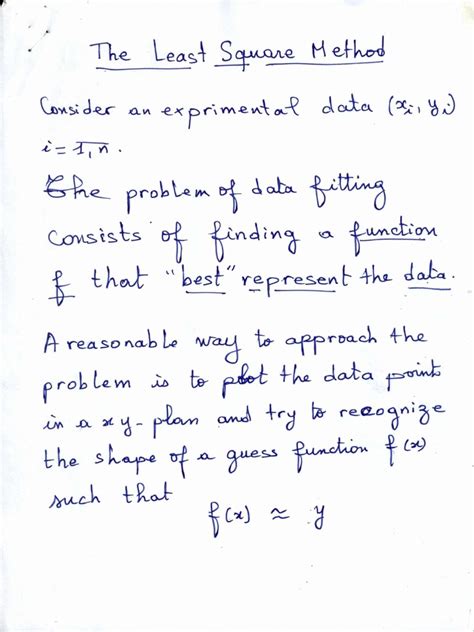 The Least Square Method
Consider an exprimental data (xᵢ, yᵢ)
i = 1,n̅.
The problem of data fitting
consists of finding a function
f that "best" represent the data.
A reasonable way to approach the
problem is to plot the data points
in a xy-plan and try to recognize
the shape of a guess function f(x)
such that
f(x) ≈ y